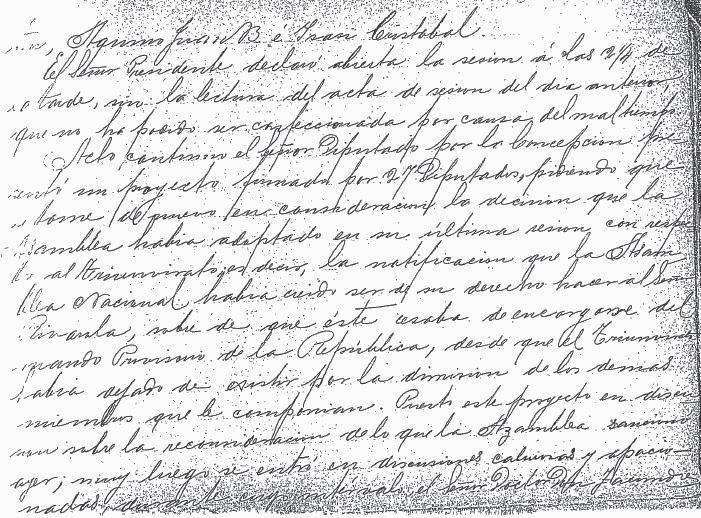 Aquino Juan B. é Isasi Cristobal.
El Señor Presidente declaró abierta la sesion á las 2¼ de
a tarde, sin la lectura del acta de sesion del dia anterior,
que no ha podido ser confeccionada por causa del mal tiempo
Acto continuo el Señor Diputado por la Concepcion pre
sentó un proyecto firmado por 27 Diputados, pidiendo que
tome de nuevo en consideracion la decision que la
Asamblea habia adoptado en su última sesion, con respec
al triunvirato, es decir, la notificacion que la Asam
blea Nacional habia creido ser de su derecho hacer al Señ
Rivarola, sobre de que éste cesaba de encargarse del
mando Provisorio de la República, desde que el Triunvirato
abia dejado de existir por la dimision de los demas
miembros que le componian. Puesto este proyecto en discu
sion sobre la reconsideracion de lo que la Azamblea sancionó
ayer; muy luego se entró en discusiones calurosas y apacio-
nadas, durante cuyo intérvalo el Señor Doctor Don Facundo